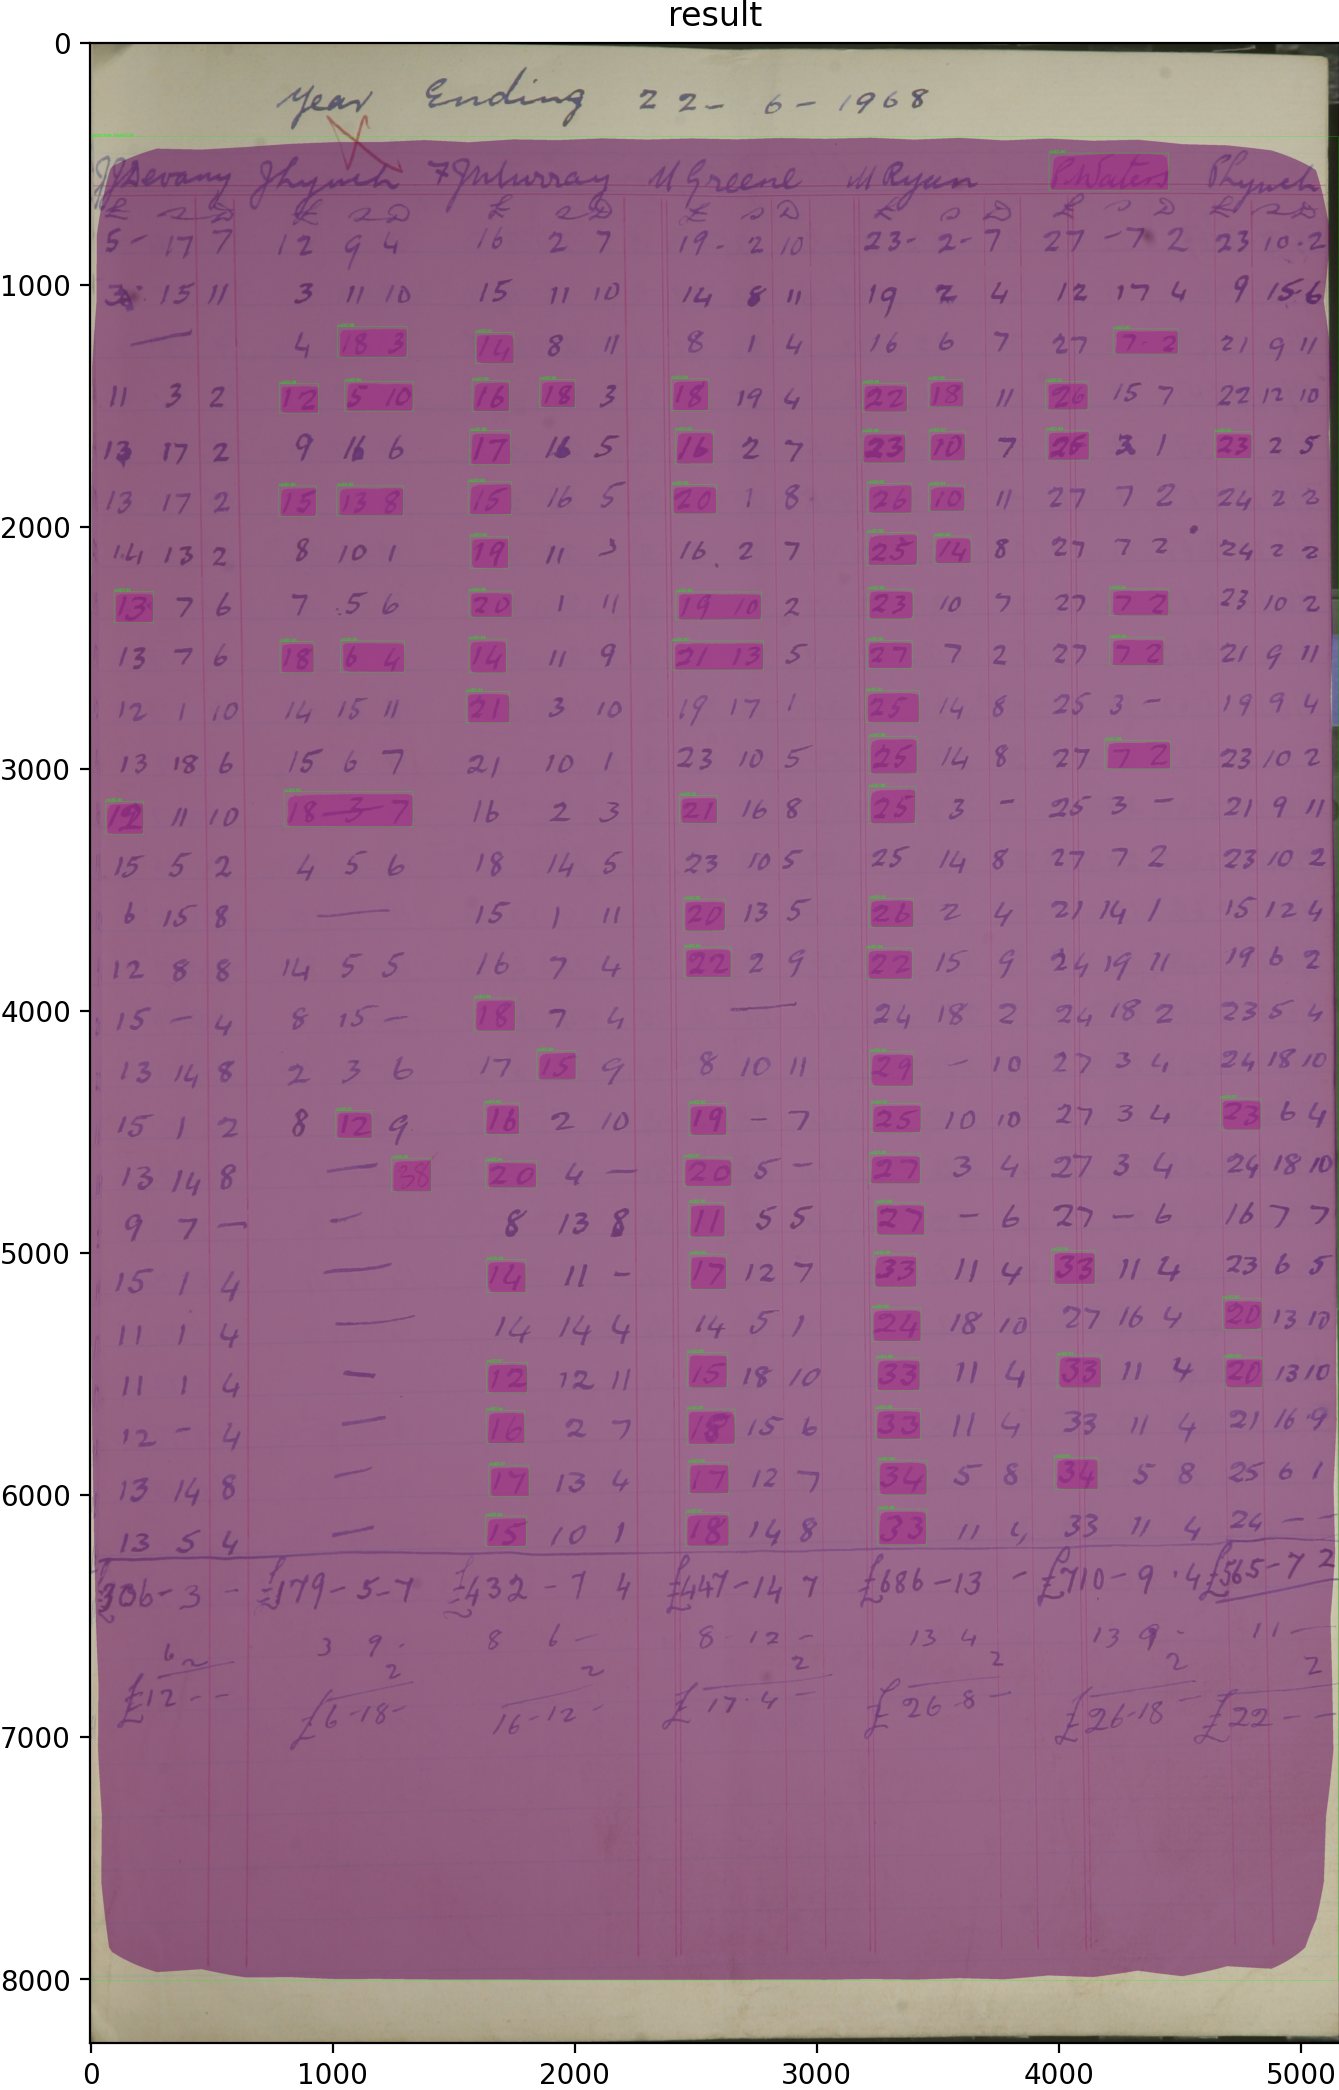 result
Year Ending 22-6-1968
JJDevany JLynch FJMurray M Greene M Ryan P.Waters PLynch
£ s D £ s D £ s D £ s D £ s D £ s D £ s D
5- 17 7 12 9 4 16 2 7 19- 2 10 23- 2- 7 27 -7 2 23 10.2
3 15 11 3 11 10 15 11 10 14 8 11 19 2 4 12 17 4 9 15-6
— 4 18 3 14 8 11 8 1 4 16 6 7 27 7.2 21 9 11
11 3 2 12 5 10 16 18 3 18 19 4 22 18 11 26 15 7 22 12 10
13 17 2 9 16 6 17 16 5 16 2 7 23 10 7 25 3 1 23 2 5
13 17 2 15 13 8 15 16 5 20 1 8 26 10 11 27 7 2 24 2 2
14 13 2 8 10 1 19 11 3 16. 2 7 25 14 8 27 7 2 24 2 2
13 7 6 7 .5 6 20 1 11 19 10 2 23 10 7 27 7 2 23 10 2
13 7 6 18 6 4 14 11 9 21 13 5 27 7 2 27 7 2 21 9 11
12 1 10 14 15 11 21 3 10 19 17 1 25 14 8 25 3 - 19 9 4
13 18 6 15 6 7 21 10 1 23 10 5 25 14 8 27 7 2 23 10 2
12 11 10 18-3 7 16 2 3 21 16 8 25 3 - 25 3 - 21 9 11
15 5 2 4 5 6 18 14 5 23 10 5 25 14 8 27 7 2 23 10 2
6 15 8 — 15 1 11 20 13 5 26 2 4 21 14 1 15 12 4
12 8 8 14 5 5 16 7 4 22 2 9 22 15 9 24 19 11 19 6 2
15 - 4 8 15 - 18 7 4 — 24 18 2 24 18 2 23 5 4
13 14 8 2 3 6 17 15 9 8 10 11 29 - 10 27 3 4 24 18 10
15 1 2 8 12 9 16 2 10 19 - 7 25 10 10 27 3 4 23 6 4
13 14 8 — 38 20 4 — 20 5 - 27 3 4 27 3 4 24 18 10
9 7 — — 8 13 8 11 5 5 27 - 6 27 - 6 16 7 7
15 1 4 — 14 11 - 17 12 7 33 11 4 33 11 4 23 6 5
11 1 4 — 14 14 4 14 5 1 24 18 10 27 16 4 20 13 10
11 1 4 — 12 12 11 15 18 10 33 11 4 33 11 4 20 13 10
12 - 4 — 16 2 7 18 15 6 33 11 4 33 11 4 21 16 9
13 14 8 — 17 13 4 17 12 7 34 5 8 34 5 8 25 6 1
13 5 4 — 15 10 1 18 14 8 33 11 4 33 11 4 24 - -
£306-3 - £179-5-7 £432-7 4 £447-14 7 £686-13 - £710-9.4 £565-7 2
6 3 9. 8 6- 8 12 - 13 4 13 9 - 11 -
2 2 2 2 2 2 2
£12 - - £6-18- 16-12- £17.4 - £26-8- £26-18- £22 - -
0
1000
2000
3000
4000
5000
6000
7000
8000
0 1000 2000 3000 4000 5000